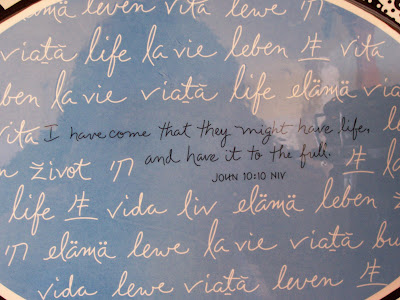 elämä leven vita lewe חי
viaţă life la vie leben 生 vita
ben la vie viaţă life elämä
vita I have come that they might have life,
and have it to the full. 生 la
život חי
JOHN 10:10 NIV
life 生 vida liv elämä leben
חי elämä lewe la vie viaţă
vida lewe viaţă leven 生